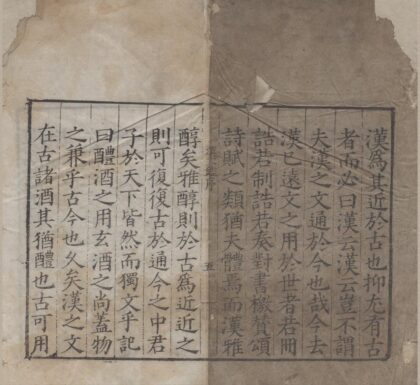 漢為其近於古也抑尤有古
者而必曰漢云漢云豈不謂
夫漢之文通於今也哉今去
漢已遠文之用於世者若冊
誥若制誥若奏對書檄贊頌
詩賦之類猶夫體焉而漢雅
醇矣雅醇則於古為近近之
則可復復古於通今之中君
子於天下皆然而獨文乎記
曰醴酒之用玄酒之尚蓋物
之兼乎古今也久矣漢之文
在古諸酒其猶醴也古可用